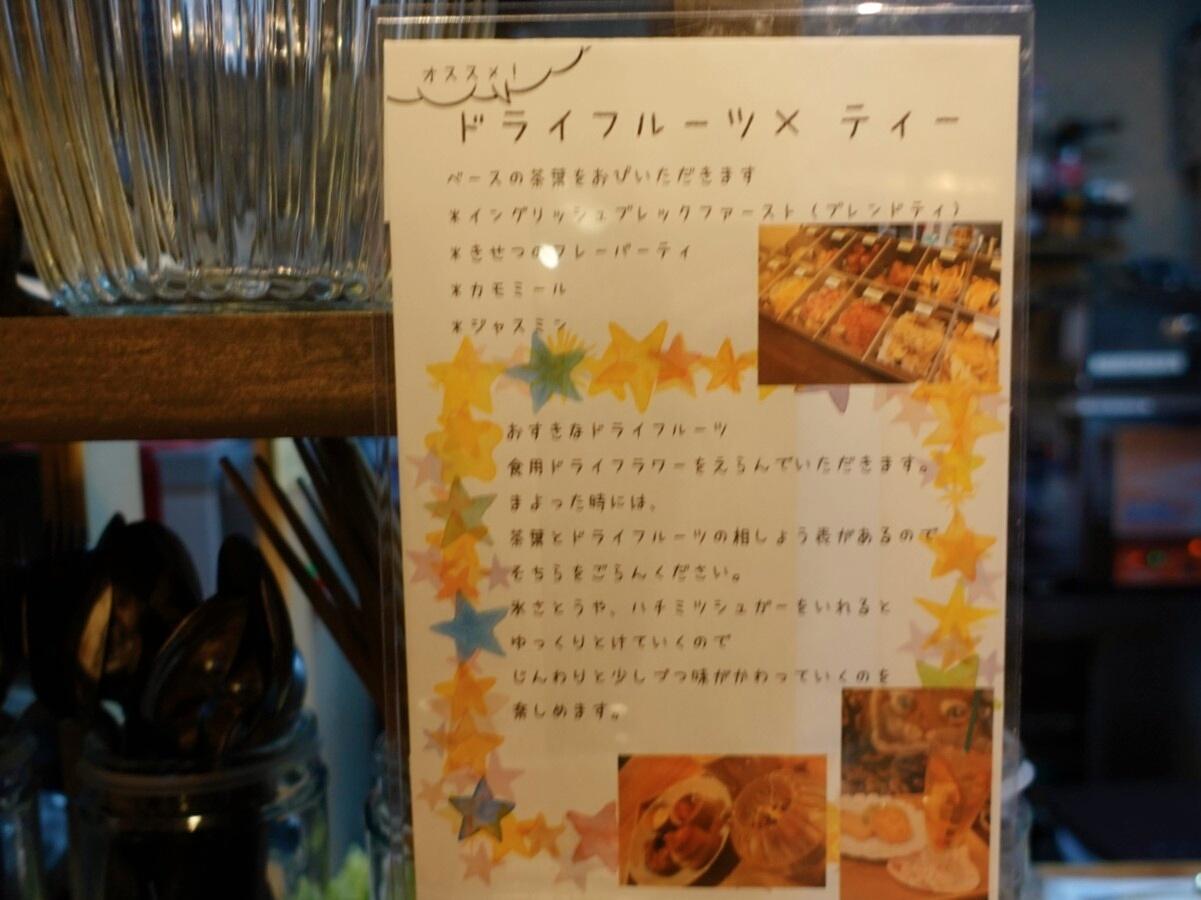 オススメ!
ドライフルーツ× ティー
ベースの茶葉をおぴいただきます
*イングリッシュブレックファースト(ブレンドティ)
*きせつのフレーバーティ
*カモミール
*ジャスミン
おすきなドライフルーツ
食用ドライフラワーをえらんでいただきます。
まよった時には、
茶葉とドライフルーツの相しょう表があるので
そちらをごらんください。
氷さとうや、ハチミツシュガーをいれると
ゆっくりとけていくので
じんわりと少しづつ味がかわっていくのを
楽しめます。